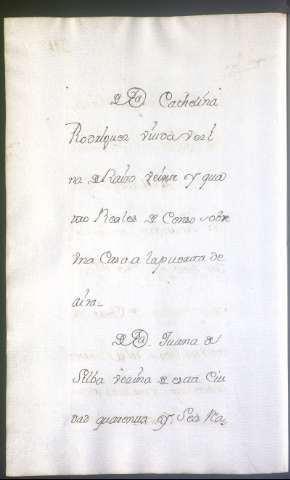 Cathelina
Rodriguez viuda Vezi
na de veinte y qua
tro Reales de Censo sobre
Una Casa a la puerta de
aira_
Juana de
Silba vezina de esta Ciu
dad quarenta y Seis Rs,